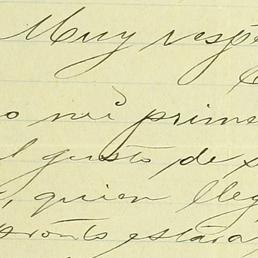 Muy respe
o mi prime
l gusto de s
, quien lleg
pronto estara